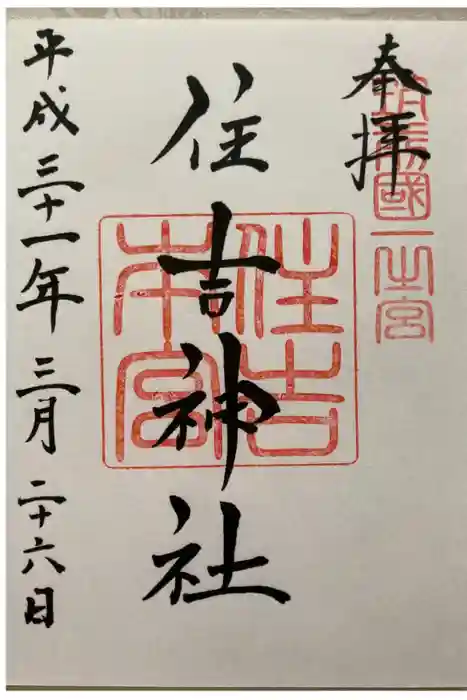 奉拝
筑前國一之宮
住吉神社
住吉
本宮
平成三十一年三月二十六日